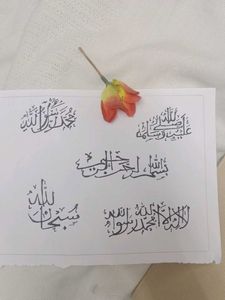 صلى الله عليه وسلم
محمد رسول الله
بسم الله الرحمن الرحيم
لا إله إلا الله محمد رسول الله
سبحان الله